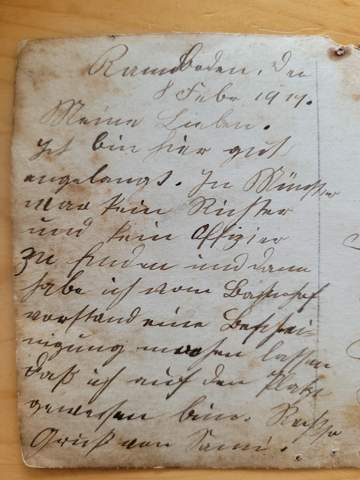 den
8 Febr 1919.
Meine Lieben.
Ich bin hier gut
angelangt. In Münster
war kein Richter
und kein Offizier
zu finden und dann
habe ich vom Bahnhof
vorstand eine Beschei
nigung machen lassen
daß ich auf dem Platz
gewesen bin.
Gruß von